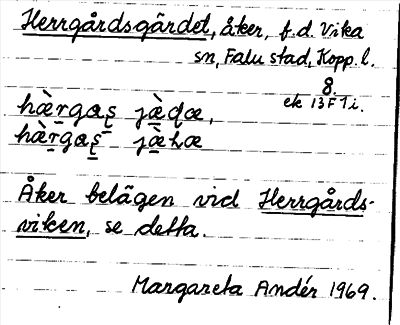 Herrgårdsgärdet, åker, f.d. Vika
sn, Falu stad, Kopp. l.
8.
ek 13 F 1 i.
Åker belägen vid Herrgårds-
viken, se detta.
Margareta Andér 1969.